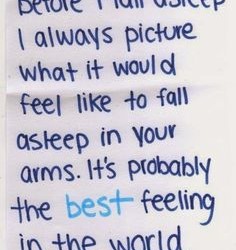 Before I fall asleep
I always picture
what it would
feel like to fall
asleep in your
arms. It's probably
the best feeling
in the world